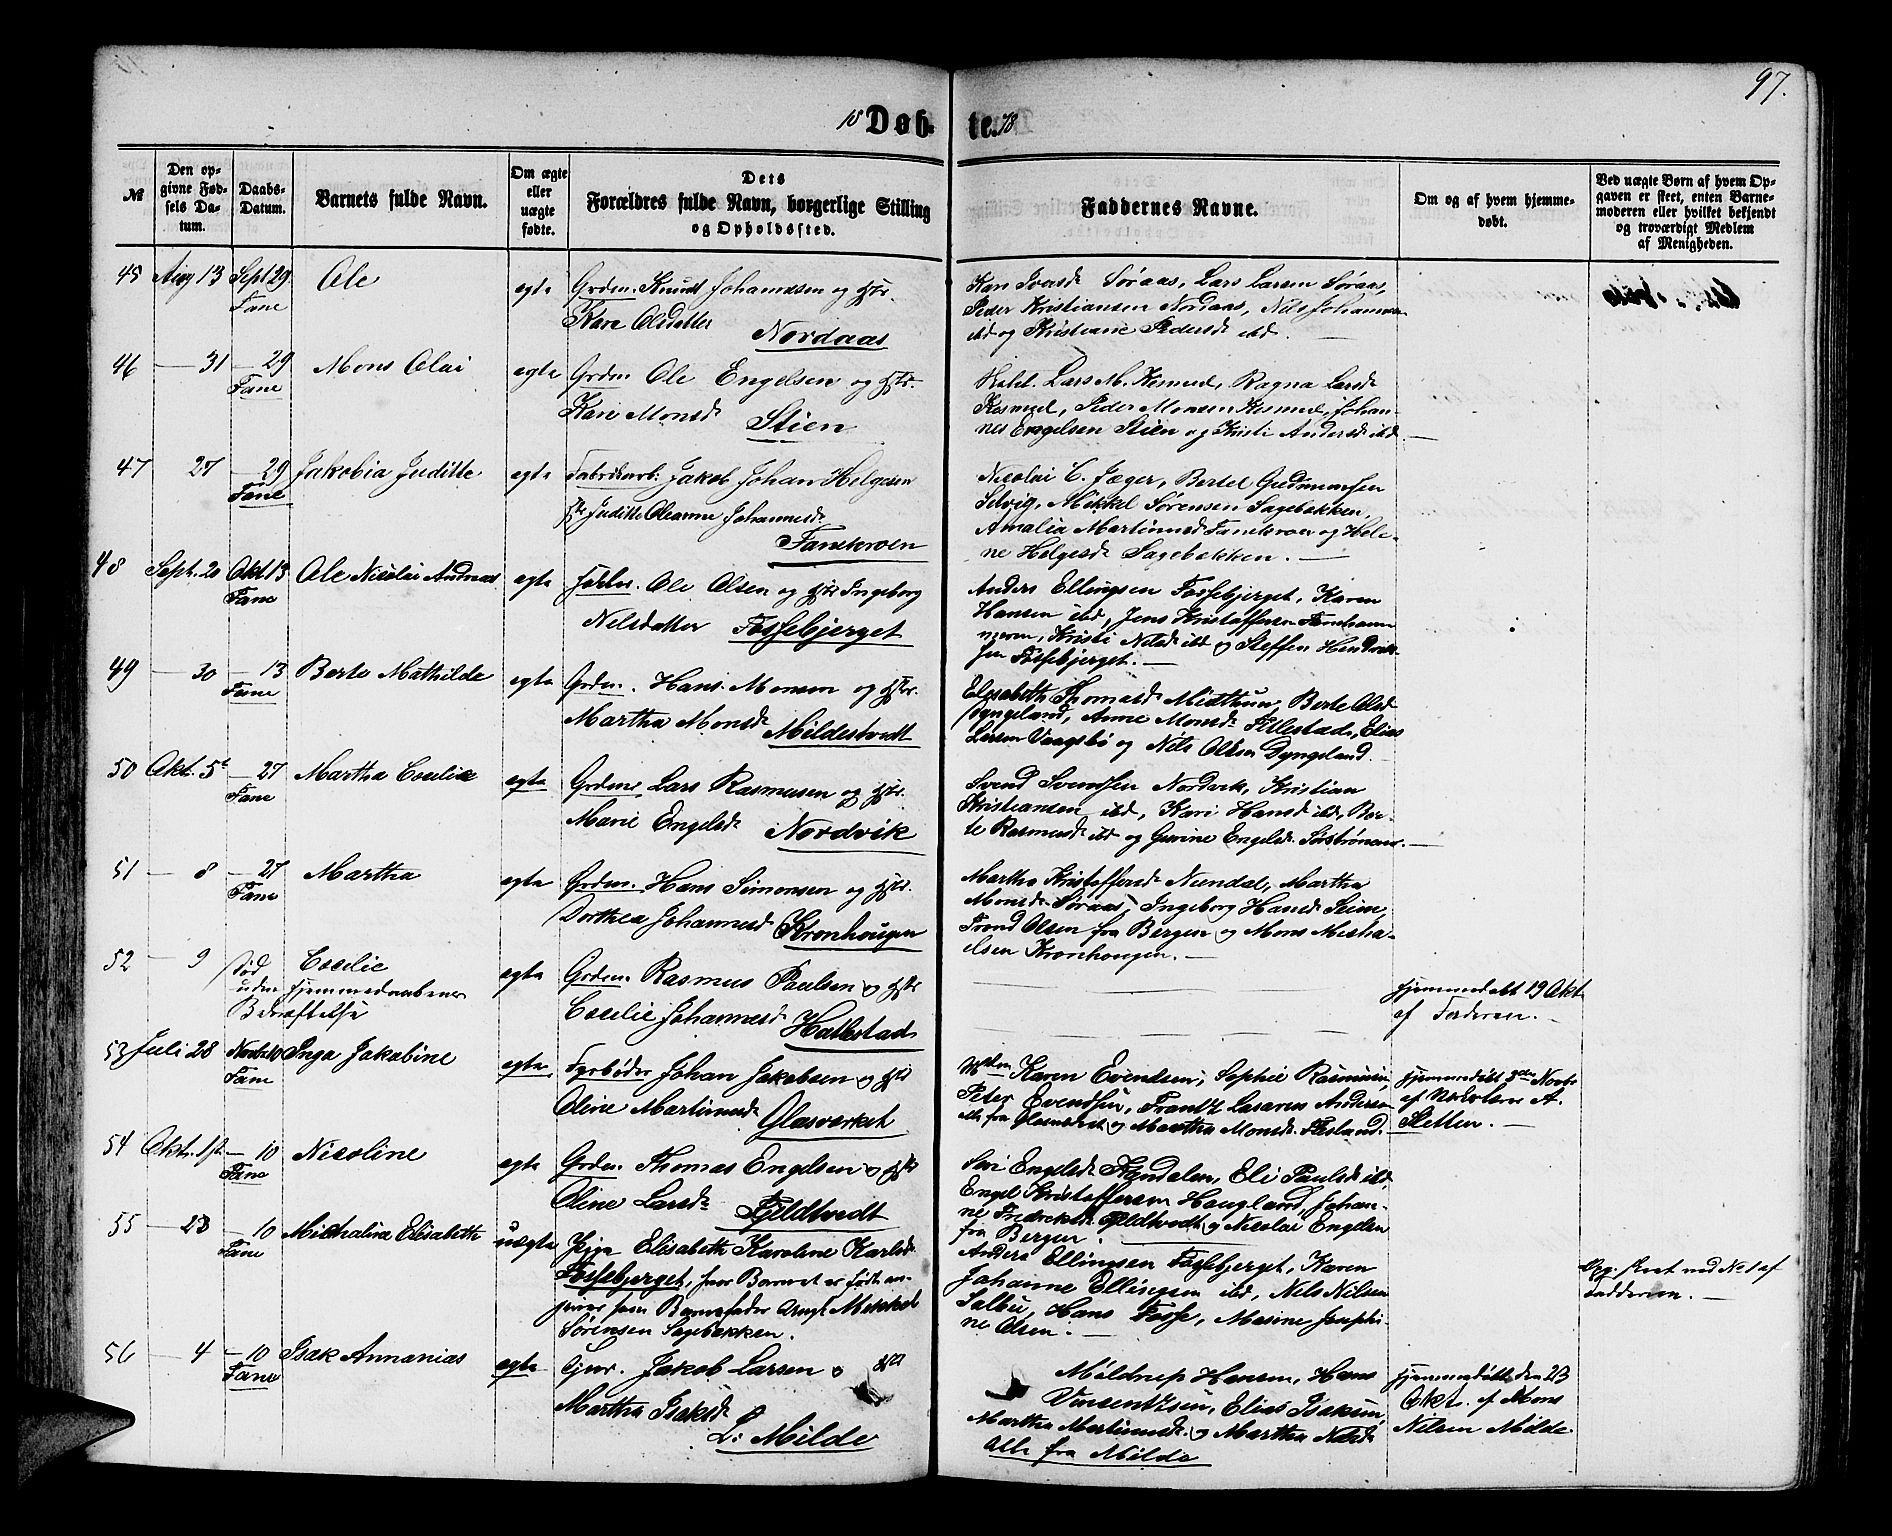 97.
18 Døb- te. 78
№
Den opgivne Fødsels Datum.
Daabs-Datum.
Barnets fulde Navn.
Om ægte eller uægte fødte.
Dets Forældres fulde Navn, borgerlige Stilling og Opholdssted.
Faddernes Navne.
Om og af hvem hjemmedøbt.
Ved uægte Børn af hvem Opgaven er skeet, enten Barnemoderen eller hvilket bekjendt og troværdigt Medlem af Menigheden.
45 Aug 13 Sept 29 Ole egte Grdm. Knud Johannesen og Hstr.
Fane Kari Olsdatter
Nordaas
Kari Ivarsd Søraas, Lars Larsen Søraas,
Peder Kristiansen Nordaas, Nils Johannesen
ibd og Kristiane Pedersd ibd. —
46 — 31 — 29 Mons Olai egte Grdm. Ole Engelsen og Hstr.
Fane Kari Monsd
Stien
Lars M. Kismul, Ragna Larsd
Kismul, Peder Monsen Kismul, Johan-
nes Engelsen Stien og Kristi Andersd ibd. —
47 27 — 29 Jakobia Juditte egte Fabrikarb. Jakob Johan Helgesen
Fane Hstr Juditte Oleanne Johannesd.
Fanekroen
Nicolai C. Jæger, Bertel Gudmundsen
Selvig, Mikkel Sørensen Sagebakken,
Amalia Martinusd Fanekroen og Hele-
ne Helgesd Sagebakken. —
48 Sept. 20 Okt 13 Ole Nicolai Andreas egte Ole Olsen og Hstr Ingeborg
Fane Nelsdatter Fossebjerget
Anders Ellingsen Fossebjerget, Karen
Hansen ibd, Jens Kristoffersen
Kristi Nelsd ibd og Steffen Hendrik-
sen Fossebjerget. —
49 — 30 — 13 Berte Mathilde egte Grdm. Hans Monsen og Hstr.
Fane Martha Monsd. Mildestvedt
Elisabeth Thomasd Midthun, Berte Olsd
Dyngeland, Anne Monsd Tillestade, Elias
Larsen Vaagsbø og Nils Olsen Dyngeland. —
50 Okt. 5t — 27 Martha Cecilie egte Grdm. Lars Rasmusen og Hstr.
Fane Marie Engelsd. Nordvik
Svend Svendsen Nordvik, Kristian
Kristiansen ibd, Kari Hansd ibd, Ber-
te Rasmusd ibd og Gurine Engelsd. Sørstrønen. —
51 — 8 — 27 Martha egte Grdm. Hans Simonsen og Hstr.
Fane Dorthea Johannesd Kronhougen
Martha Kristoffersd Nundal, Martha
Monsd Søraas, Ingeborg Hansd Seim,
Trond Olsen fra Bergen og Mons Micha-
elsen Kronhougen. —
52 — 9 død Cecilie egte Grdm. Rasmus Paulsen og Hstr
uden hjemmedaabens
Bekræftelse
Cecilie Johannesd. Hallestad
hjemmedøbt 19 Okt
af Faderen. —
53 Juli 28 Novbr 10 Inga Jakobine egte Fyrbøder Johan Jakobsen og Hstr
Fane Oline Martinusd. Glasverket
Karen Evendsen, Sophie Rasmusen,
Peter Evendsen, Frantz Lasarus Andersen
alle fra Glasverket og Martha Monsd. Titland.
hjemmedøbt 3die Novbr
af A.
Sletten. —
54 Okt. 1st — 10 Nicoline egte Grdm. Thomas Engelsen og Hstr
Fane Oline Larsd. Tveldtvedt
Siri Engelsd. Eli Paulsd ibd,
Engel Kristoffersen Haugland, Johan-
ne Fredriksd og Nicolai Engelsen
fra Bergen.
55 — 23 — 10 Michaline Elisabeth uægte Pige Elisabeth Karoline Karlsd.
Fane Fossebjerget, hvor Barnet er født, an-
giver som Barnefader Ungk Mikkel
Sørensen Sagebakken.
Anders Ellingsen Fossebjerget, Karen
Johanne Ellingsen ibd, Nils Nilsen
Salbu, Hans Fosse, Masine Josephi-
ne Olsen. —
Opg. skeet ved No 1 af
Fadderne. —
56 — 4 — 10 Isak Annanias egte Jakob Larsen og Hstr
Fane Martha Isaksd.
L: Milde
Mildrup Hansen, Hans
Vinsentsen, Elias Isaksen,
Martha Martinusd. og Martha Nilsd.
Alle fra Milde
hjemmedøbt den 23
Okt. af Mons
Nilsen Milde.